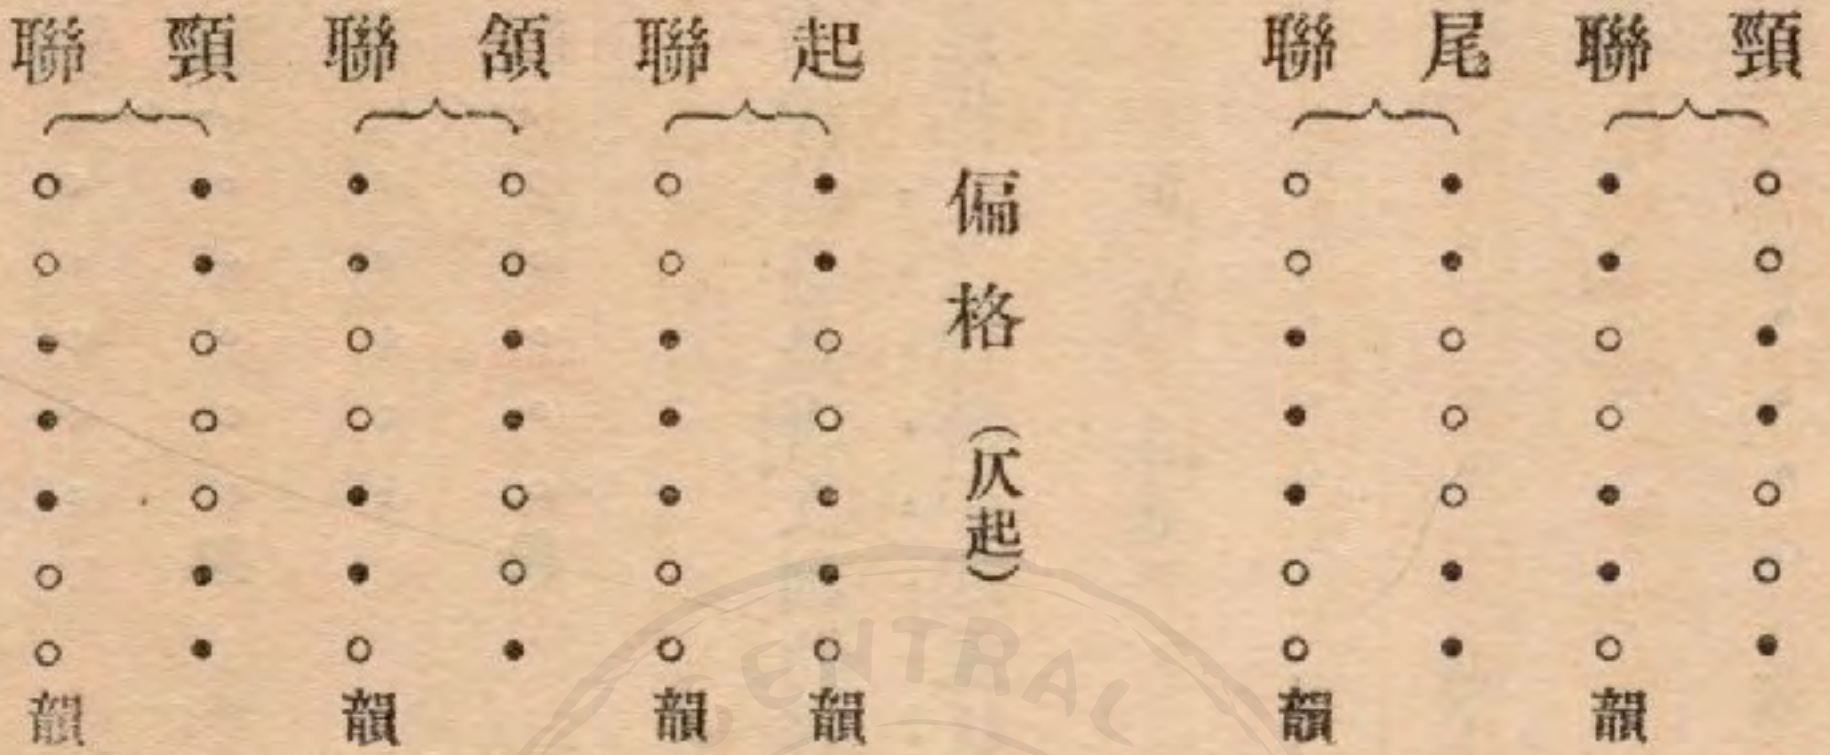 頸○○●●○○●
聯●●○○●●○韻
尾●●○○○●●
聯○○●●●○○韻
偏格(仄起)
起●●○○●●○韻
聯○○●●●○○韻
頷○○●●○○●
聯●●○○●●○韻
頸●●○○○●●
聯○○●●●○○韻
CENTRAL